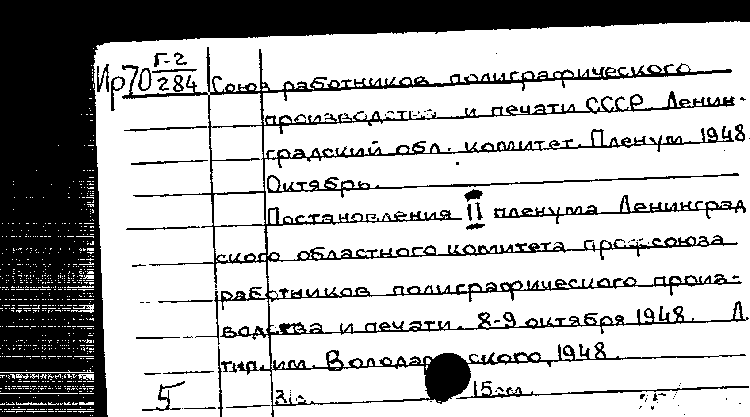 Ир70 Г-2/284 Союз работников полиграфического
производства и печати СССР. Ленин-
градский обл. комитет. Пленум. 1948.
Октябрь.
Постановления II пленума Ленинград
ского областного комитета профсоюза
работников полиграфического произ-
водства и печати. 8-9 октября 1948. Л.
тип. им. Володарского, 1948.
5